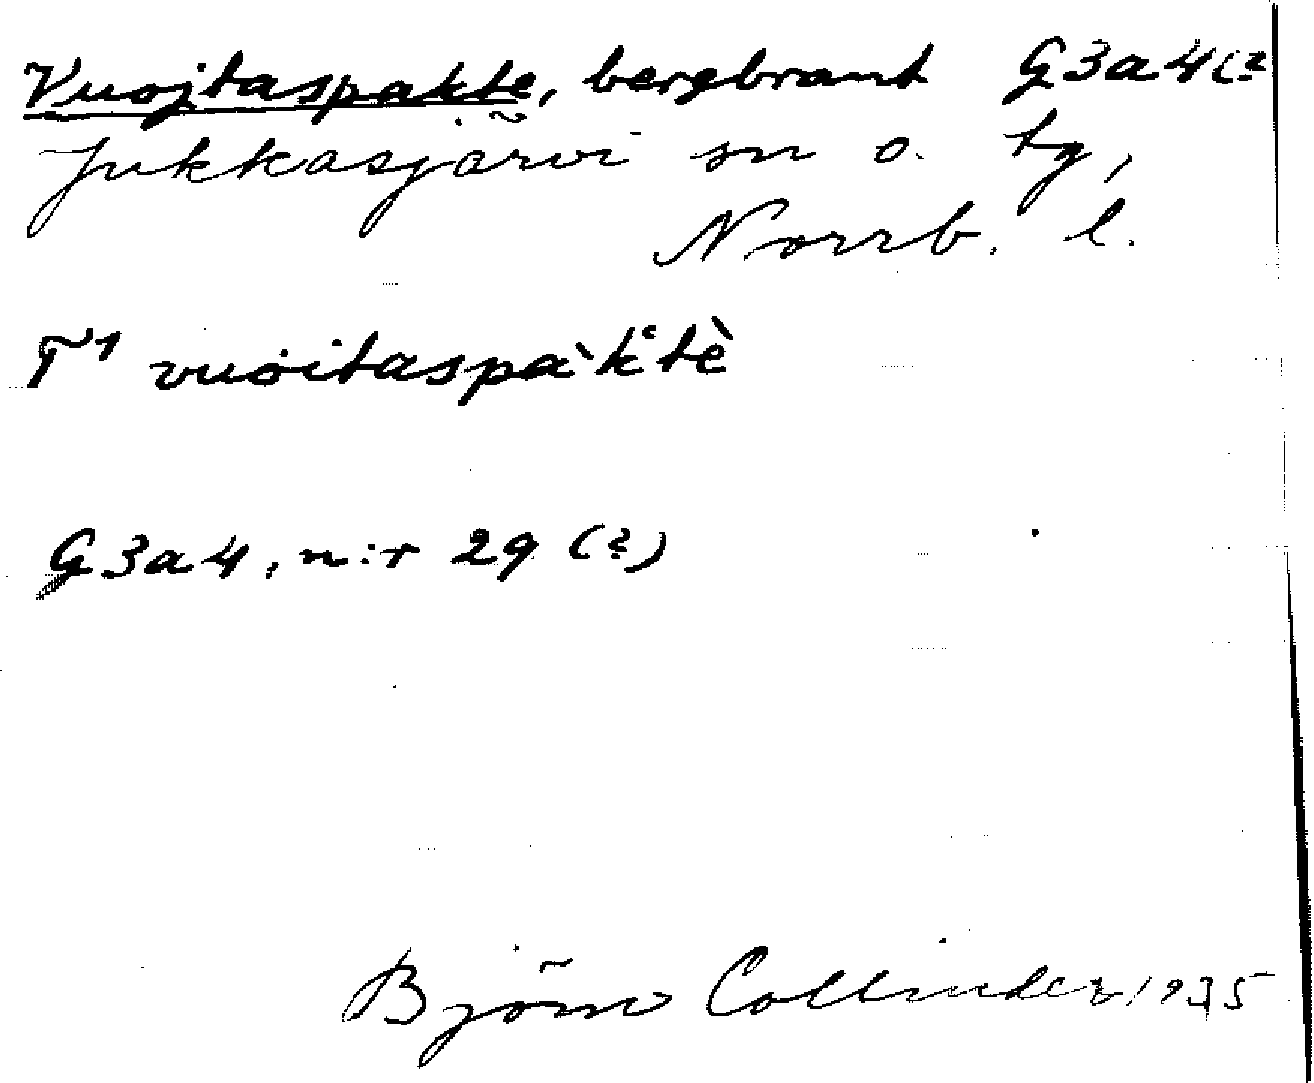 Vuojtaspakte, bergbrant G3a4(?
Jukkasjärvi sn o. tg,
Norrb. l.
T1 vuoitaspàk'tè
G3a4, n:r 29 (?)
Björn Collinder 1935